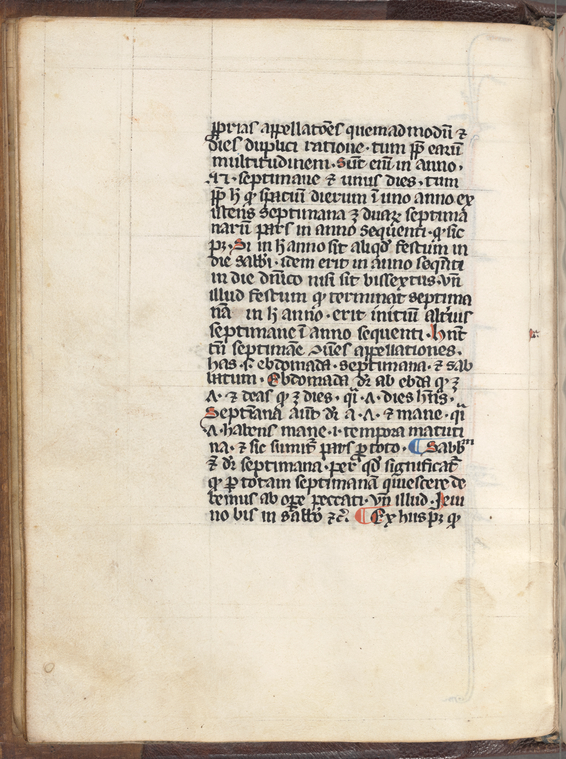 pprias appellatōes quemadmodū ⁊
dies duplici ratione · tum pp̄ earū
multitudinem · Sūt em̄ in anno ·
septimane ⁊ unus dies · tum
pp̄ h̄ ꝙ spatiū dierum ī uno anno ex
istens septimana ꝫ duaꝝ septima
narū pars in anno sequenti · ꝙ sic
pꝫ · Si in h̄ anno sit aliqd̄ festum in
die sabbi · idem erit in anno seqn̄ti
in die dn̄ico nisi sit bissextus · vn̄
illud festum ꝙ terminat septima
nā in h̄ anno · erit initiū alterius
septimane ī anno sequenti · Hn̄t
septimāe appellationes ·
has · s · ebdomada · septimana · ⁊ sab
batum · Ebdomada dr̄ ab ebda ꝙ ꝫ
·ʌ· ⁊ deas ꝙ ꝫ dies · qi · ʌ · dies hn̄s ·
Septīana aūt dr̄ a · ʌ · ⁊ mane · qi
·ʌ· habens mane · i · tempora matuti
na · ⁊ sic sumit᷑ pars ꝓ toto · ¶ Sabbm
⁊ dr̄ septimana · per qd̄ significat᷑
ꝙ ꝓ totam septimanā quiescere de
bemus ab oꝑe peccati · vn̄ illud · Ieiu
no bis in sabb̄o ⁊c̄ · ¶ Ex hiis pꝫ ꝙ